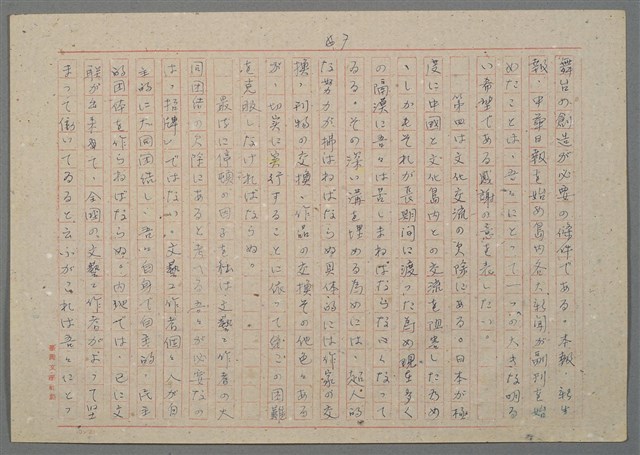 67
舞台の創造が必要の條件である。本報、新生
報、中華日報を始め島内各大新聞が副刊を始
めたことは、吾々にとって一つの大きな明る
い希望である感謝の意を表したい。
第四は文化交流の欠除にある。日本が極
度に中國と文化島内との交流を阻害したため
、しかもそれが長期間に渡った為め現在多く
の隔漠に吾々は苦しまねばならなくなって
ゐる。その深い溝を埋める為めには、超人的
な努力が拂はねばならぬ具体的には作家の交
換、刊物の交換、作品の交換その他色々ある
が、切実に実行することに依って 困難
を克服しなければならぬ。
最後に停頓の因子を私は文藝工作者の大
同団結の欠除にあると考へる吾々が必要なの
は、招牌ではない、文藝工作者個々人が自
主的に大同団結し、吾々自身で自主的、民主
的団体を作らねばならぬ。内地では、已に文
联が出来てゐて、全國の文藝工作者がよって堅
まって働いてゐると云ふがこれは吾々にとっ
臺灣文學社